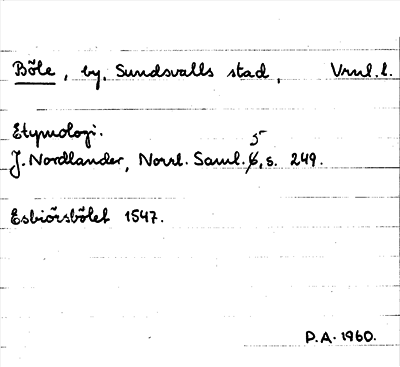 Böle, by, Sundsvalls stad, Vrml. l.
Etymologi.
J. Nordlander, Norrl. Saml. 5, s. 249.
Esbiörsbölet 1547.
P.A. 1960.